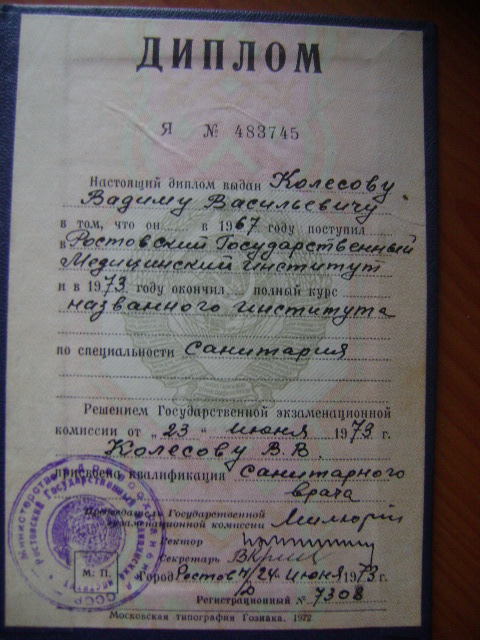 ДИПЛОМ
Я № 483745
Настоящий диплом выдан Колесову
Вадиму Васильевичу
в том, что он в 1967 году поступил
в Ростовский Государственный
Медицинский институт
и в 1973 году окончил полный курс
названного института
по специальности Санитария
Решением Государственной экзаменационной
комиссии от „23" июня 1973 г.
Колесову В.В.
присвоена квалификация Санитарного
врача
Председатель Государственной
экзаменационной комиссии
Ректор
Секретарь
Город Ростов н/Д 24 июня 1973 г.
Регистрационный № 7308
М. П.
Московская типография Гознака. 1972